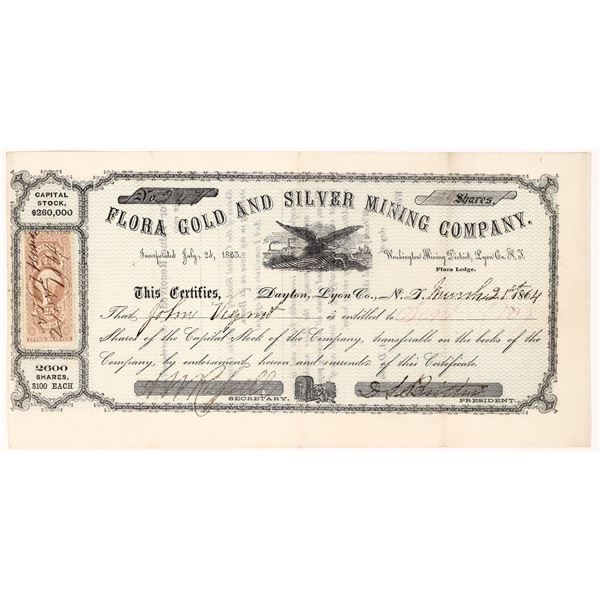 CAPITAL
STOCK,
$260,000
2600
SHARES,
$100 EACH
No. 244
Shares.
FLORA GOLD AND SILVER MINING COMPANY.
Incorporated July, 2d, 1863.
Washington Mining District, Lyon Co. N. T.
Flora Ledge.
This Certifies, Dayton, Lyon Co., N. T. March 21st 1864
That John is entitled to
Shares of the Capital Stock of the Company, transferable on the books of the
Company, by endorsement hereon and surrender of this Certificate.
SECRETARY.
PRESIDENT.